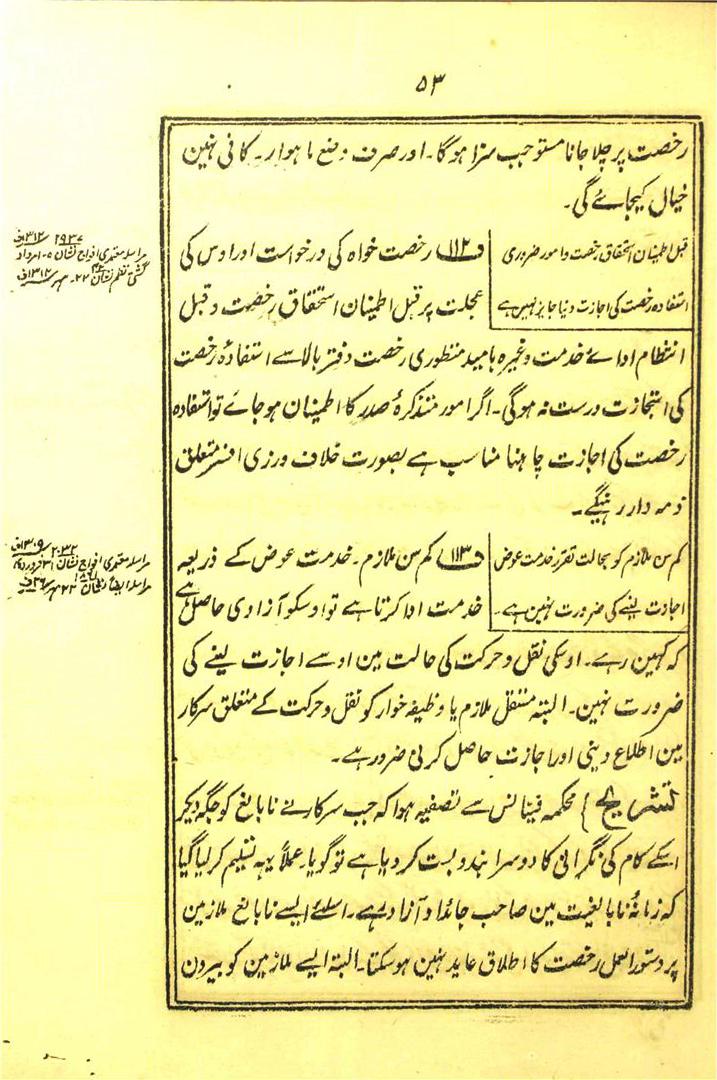 ۵۳
رخصت پر چلا جانا مستوجب سزا ہوگا۔ اور صرف وضع ماہوار۔ کافی نہین
خیال کیجائے گی۔
قبل اطمینان استحقاق رخصت و امور ضروری
استفادہ رخصت کی اجازت دنیا جایز نہین ہے
ف۱۱۲ رخصت خواہ کی درخواست اور اوس کی
عجلت پر قبل اطمینان استحقاق رخصت و قبل
انتظام اداے خدمت وغیرہ بامید منظوری رخصت دفتر بالا سے استفادۂ رخصت
کی استجازت درست نہ ہوگی۔ اگر امور متذکرۂ صدر کا اطمینان ہو جاے تو استفادہ
رخصت کی اجازت چاہنا مناسب ہے بصورت خلاف ورزی افسر متعلق
ذمہ دار رہینگے۔
مراسلہ معتمدی افواج نشان
گشتی نظم نشان
کم سن ملازم کو بحالت تقرر خدمت عوض
اجازت لینے کی ضرورت نہین ہے۔
ف۱۱۳ کم سن ملازم۔ خدمت عوض کے ذریعہ
خدمت ادا کرتا ہے تو اوسکو آزادی حاصل ہے
کہ کہین رہے۔ اوسکی نقل و حرکت کی حالت مین اوسے اجازت لینے کی
ضرورت نہین۔ البتہ مستقل ملازم یا وظیفہ خوار کو نقل و حرکت کے متعلق سرکار
مین اطلاع دینی اور اجازت حاصل کرنی ضرور ہے۔
مراسلہ معتمدی افواج نشان
مراسلہ ایضاً نشان
تشریح } محکمہ فینانس سے تصفیہ ہوا کہ جب سرکار نے نابالغ کو جگہ دیکر
اسکے کام کی نگرانی کا دوسرا بندوبست کر دیا ہے تو گویا عملاً یہہ تسلیم کر لیا گیا
کہ زمانۂ نابالغیت مین صاحب جائداد آزاد ہے۔ اسلئے ایسے نابالغ ملازمین
پر دستور العمل رخصت کا اطلاق عاید نہین ہو سکتا۔ البتہ ایسے ملازمین کو بیرون